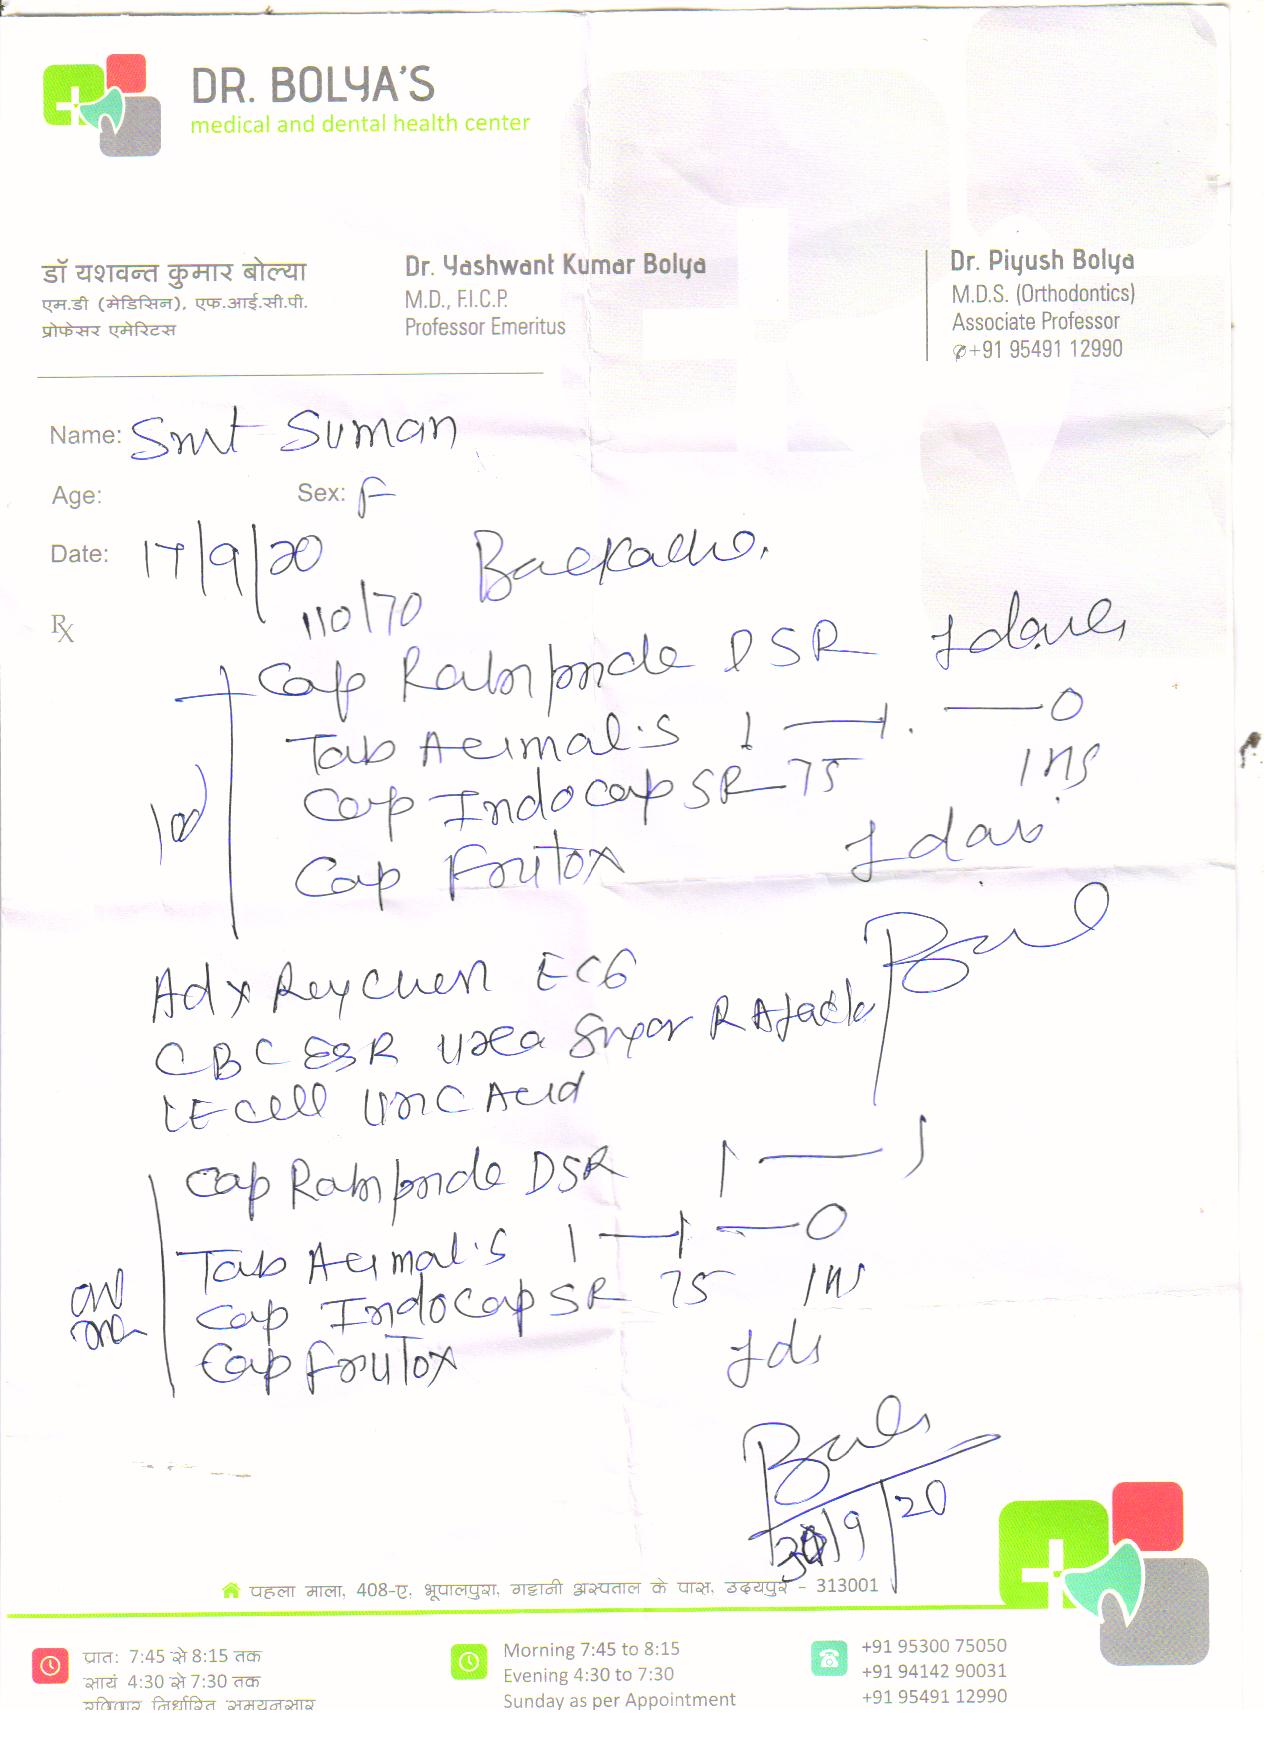 DR. BOLYA'S
medical and dental health center
डॉ यशवन्त कुमार बोल्या
एम.डी (मेडिसिन), एफ.आई.सी.पी.
प्रोफेसर एमेरिटस
Dr. Yashwant Kumar Bolya
M.D., F.I.C.P.
Professor Emeritus
Dr. Piyush Bolya
M.D.S. (Orthodontics)
Associate Professor
+91 95491 12990
Name: Smt Suman
Age: Sex: F
Date: 17/9/20 Backache.
110/70
Rx
Cap DSR
Tab 1 — 1 — 0
Cap Indocap SR 75
Cap
Adv ECG
CBC ESR Urea Sugar R A
LE cell Uric Acid
Cap DSR 1 — 1
Tab 1 — 1 — 0
Cap Indocap SR 75
Cap
/9/20
पहला माला, 408-ए, भूपालपुरा, गट्टानी अस्पताल के पास, उदयपुर - 313001
प्रात: 7:45 से 8:15 तक
सायं 4:30 से 7:30 तक
रविवार निर्धारित समयनुसार
Morning 7:45 to 8:15
Evening 4:30 to 7:30
Sunday as per Appointment
+91 95300 75050
+91 94142 90031
+91 95491 12990